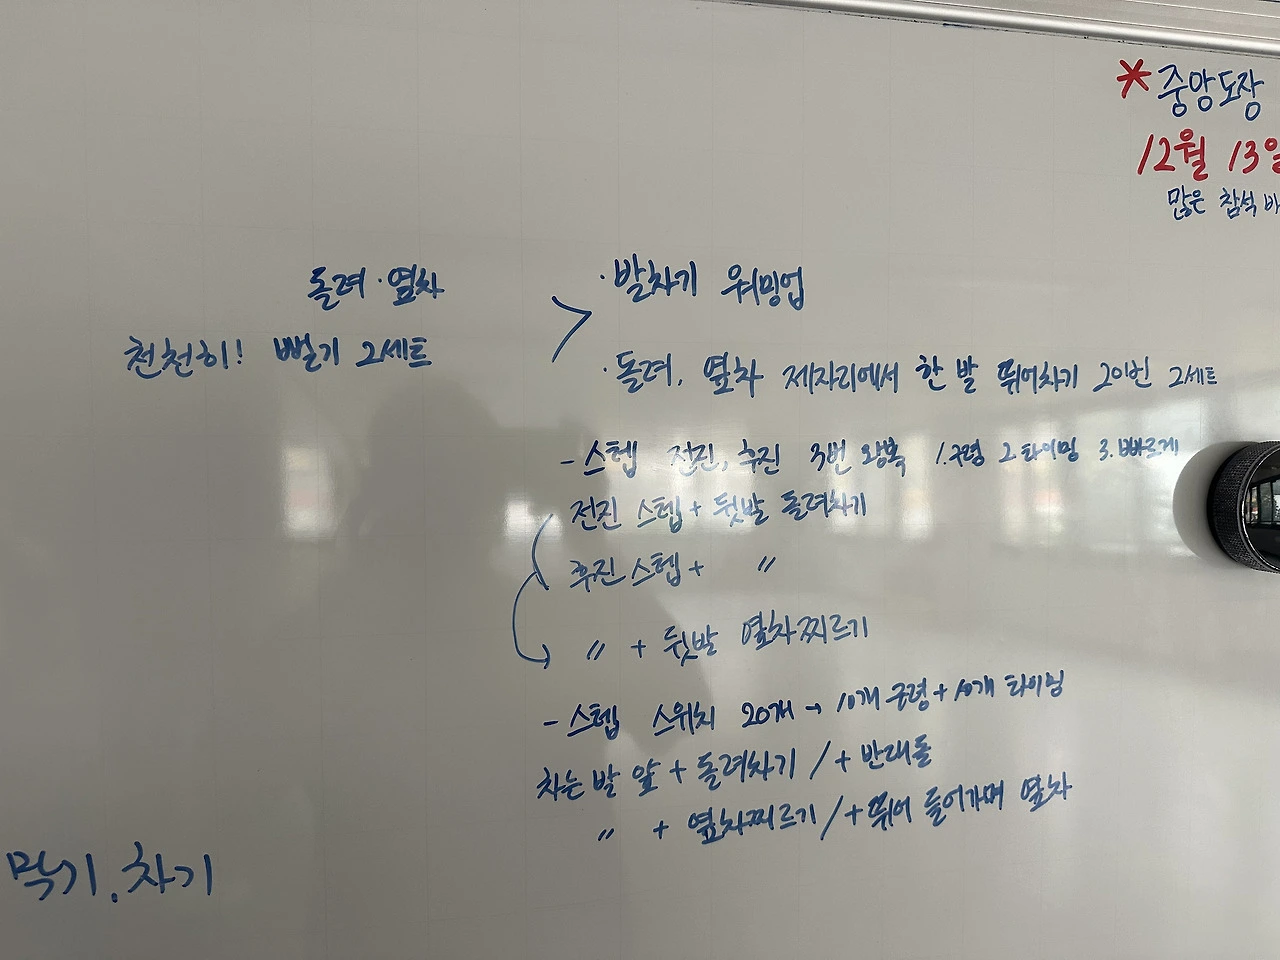 * 중앙도장
12월 13일
많은 참석 바
돌려·옆차
천천히! 뻗기 2세트
>
·발차기 워밍업
·돌려, 옆차 제자리에서 한 발 뛰어차기 20번 2세트
- 스텝 전진, 후진 3번 왕복 1.구령 2.타이밍 3.빠르게
전진 스텝 + 뒷발 돌려차기
후진 스텝 + 〃
〃 + 뒷발 옆차찌르기
- 스텝 스위치 20개 → 10개 구령 + 10개 타이밍
차는 발 앞 + 돌려차기 / + 반대돌
〃 + 옆차찌르기 / + 뛰어 들어가며 옆차
막기. 차기